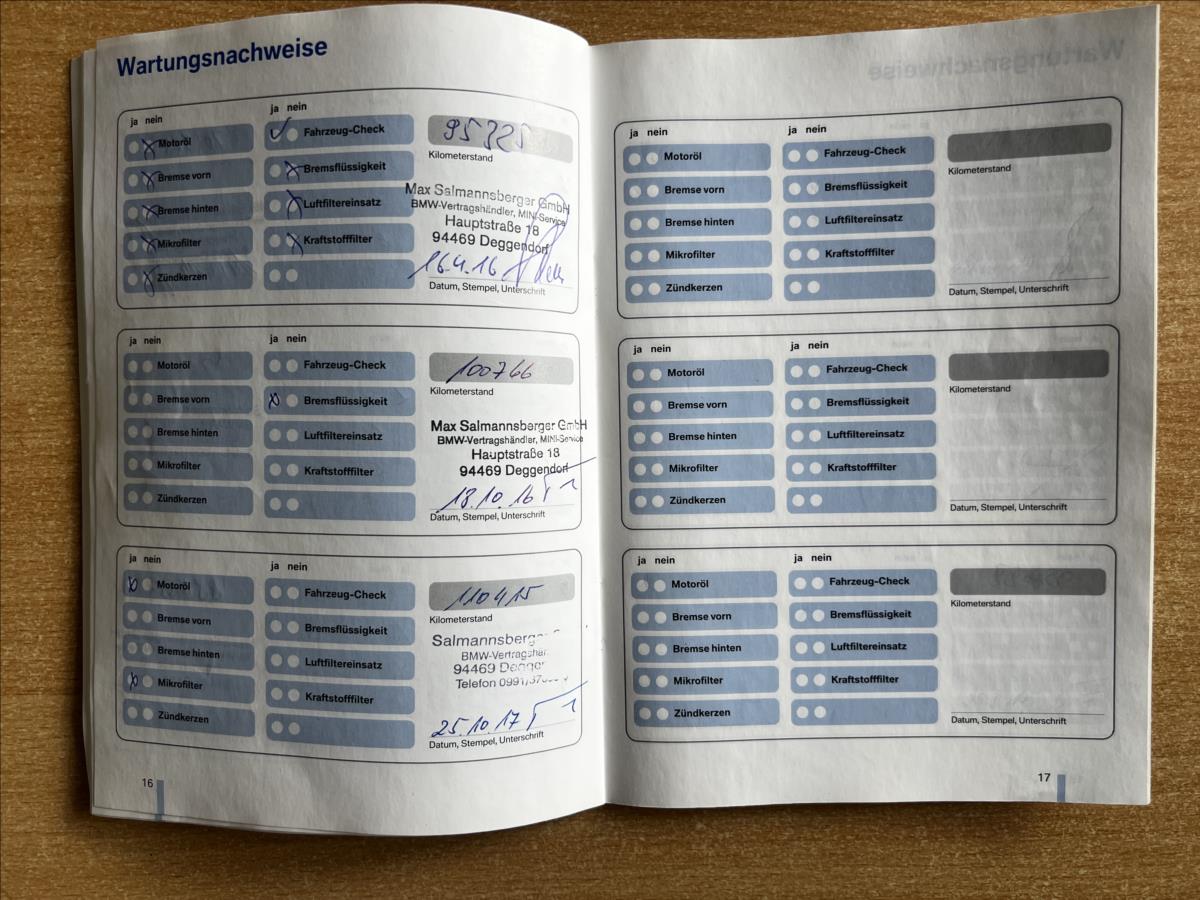 Wartungsnachweise
ja nein
ja nein
Motoröl
Bremse vorn
Bremse hinten
Mikrofilter
Zündkerzen
Fahrzeug-Check
Bremsflüssigkeit
Luftfiltereinsatz
Kraftstofffilter
95325
Kilometerstand
Max Salmannsberger GmbH
BMW-Vertragshändler, MINI-Service
Hauptstraße 18
94469 Deggendorf
16.4.16
Datum, Stempel, Unterschrift
ja nein
ja nein
Motoröl
Bremse vorn
Bremse hinten
Mikrofilter
Zündkerzen
Fahrzeug-Check
Bremsflüssigkeit
Luftfiltereinsatz
Kraftstofffilter
100766
Kilometerstand
Max Salmannsberger GmbH
BMW-Vertragshändler, MINI-Service
Hauptstraße 18
94469 Deggendorf
13.10.16
Datum, Stempel, Unterschrift
ja nein
ja nein
Motoröl
Bremse vorn
Bremse hinten
Mikrofilter
Zündkerzen
Fahrzeug-Check
Bremsflüssigkeit
Luftfiltereinsatz
Kraftstofffilter
110415
Kilometerstand
Salmannsberger
BMW-Vertragshä
94469 Deggen
Telefon 0991/370
25.10.17
Datum, Stempel, Unterschrift
16
ja nein
ja nein
Motoröl
Bremse vorn
Bremse hinten
Mikrofilter
Zündkerzen
Fahrzeug-Check
Bremsflüssigkeit
Luftfiltereinsatz
Kraftstofffilter
Kilometerstand
Datum, Stempel, Unterschrift
ja nein
ja nein
Motoröl
Bremse vorn
Bremse hinten
Mikrofilter
Zündkerzen
Fahrzeug-Check
Bremsflüssigkeit
Luftfiltereinsatz
Kraftstofffilter
Kilometerstand
Datum, Stempel, Unterschrift
ja nein
ja nein
Motoröl
Bremse vorn
Bremse hinten
Mikrofilter
Zündkerzen
Fahrzeug-Check
Bremsflüssigkeit
Luftfiltereinsatz
Kraftstofffilter
Kilometerstand
Datum, Stempel, Unterschrift
17